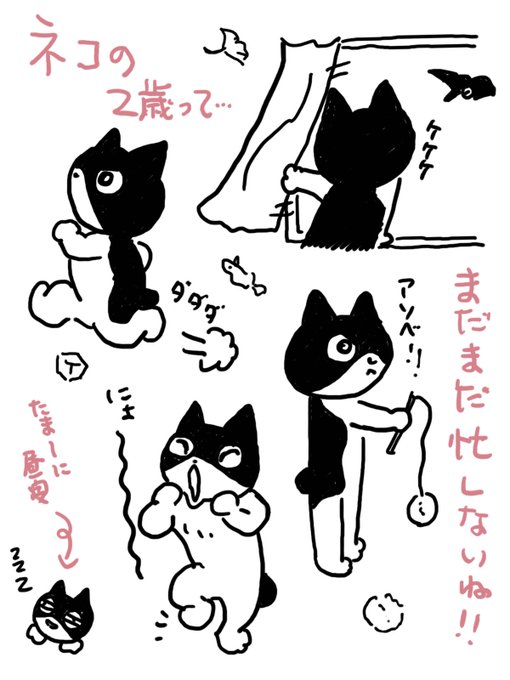 ネコの
2歳って…
ケケケ
アソベー!!
ダダダ
まだまだ忙しないね!!
にょ
たまーに
昼寝
zzz